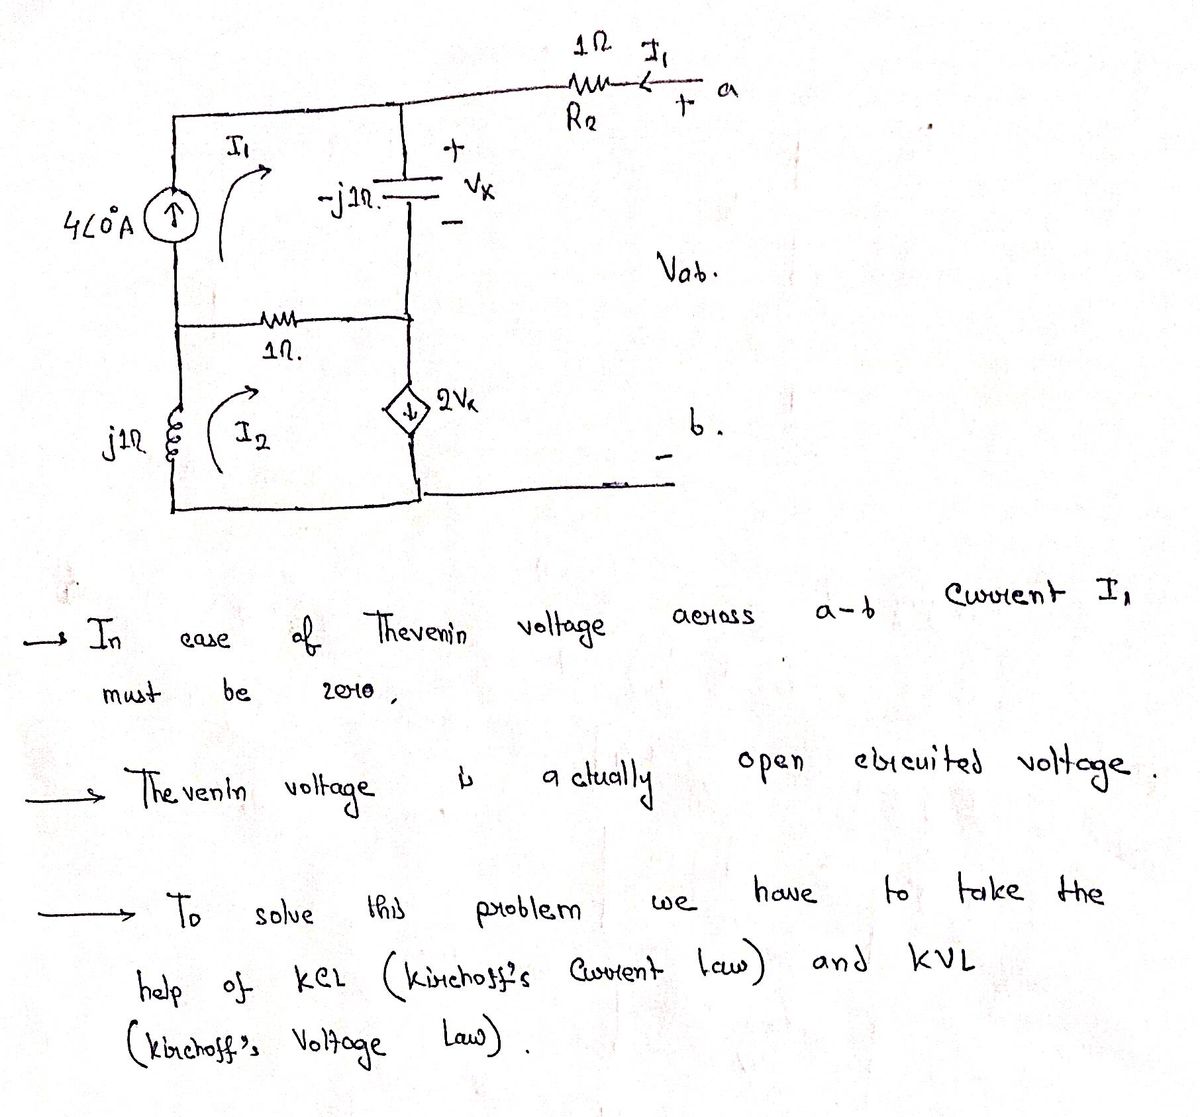 1Ω I₁
a
+
R₂
I₁
+
-j1Ω. Vx
-
4∠0°A
Vab.
1Ω.
2Vx
b.
j1Ω I₂
-
→ In case of Thevenin voltage across a-b current I₁
must be zero.
→ Thevenin voltage is actually open circuited voltage.
→ To solve this problem we have to take the
help of KCL (Kirchoff's Current law) and KVL
(Kirchoff's Voltage Law).